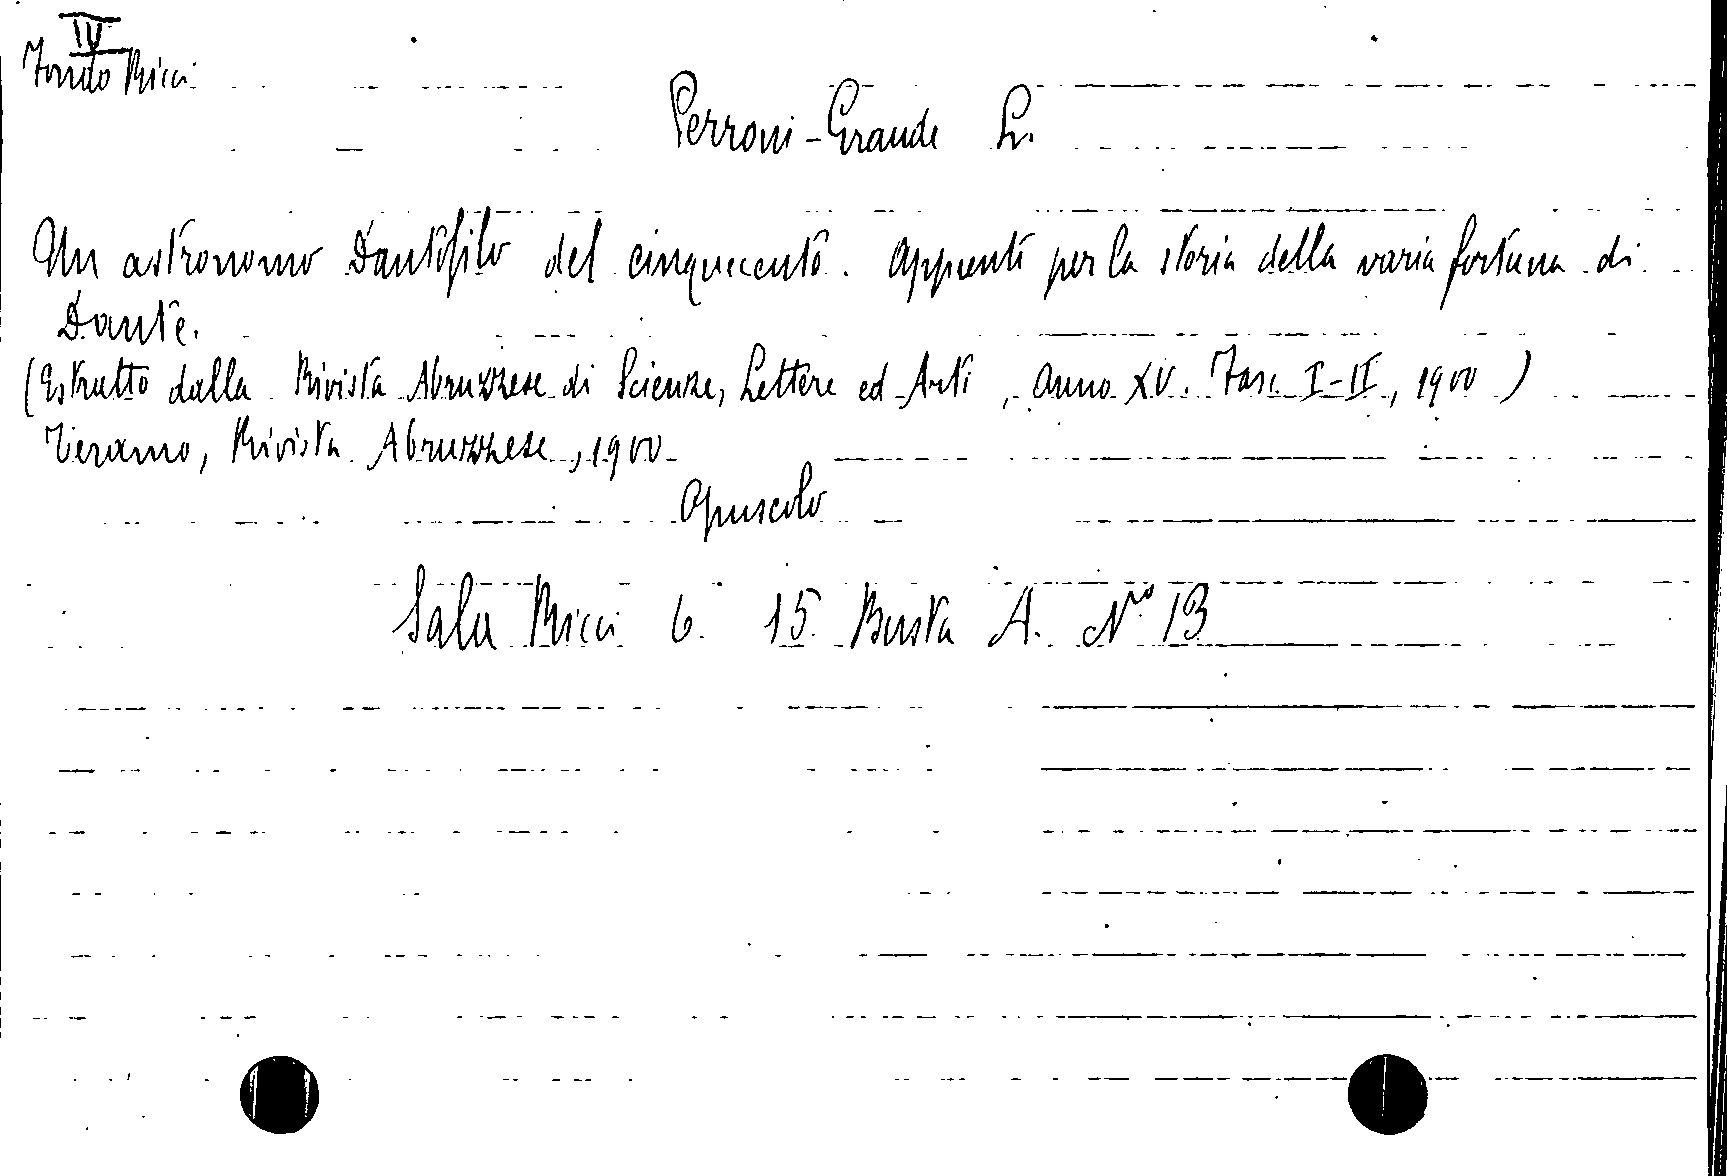 IV
Fondo Ricci
Perroni-Grande L.
Un astronomo Dantofilo del cinquecento. Appunti per la storia della varia fortuna di
Dante.
(Estratto dalla Rivista Abruzzese di Scienze, Lettere ed Arti, anno XV. Fasc. I-II, 1900)
Teramo, Rivista Abruzzese, 1900
Opuscolo
Sala Ricci 6. 15. Busta A. Nro 13